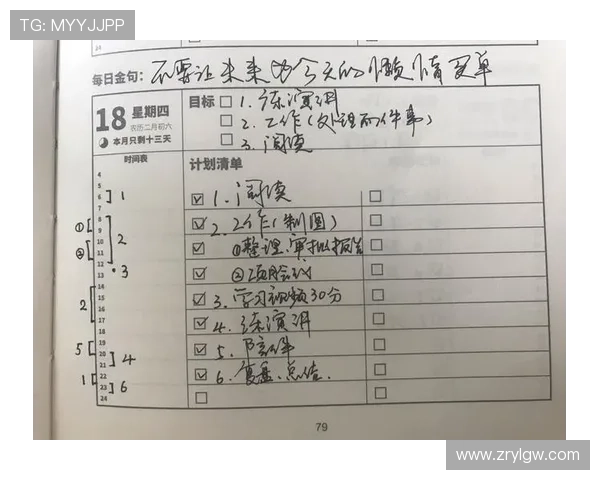 TG: MYYJJPP
24
每日金句: 不要让未来为今天的懒惰买单
18 星期四
农历二月初六
本月只剩十三天
目标
1. 练演讲
2. 工作(处理两件事)
3. 阅读
时间表
计划清单
4
5
6 ] 1
7
8
① [ 9
10 ] 2
② [ 11
12
13 • 3
14
15
2 [ 16
17
18
19
5 [ 20
21 ] 4
1 [ 22
23 ] 6
24
1. 阅读
2. 工作(制图)
①整理、审批报告
②项目会议
3. 学习视频30分
4. 练演讲
5. 陪伴
6. 复盘、总结.
79
www.zrylgw.com